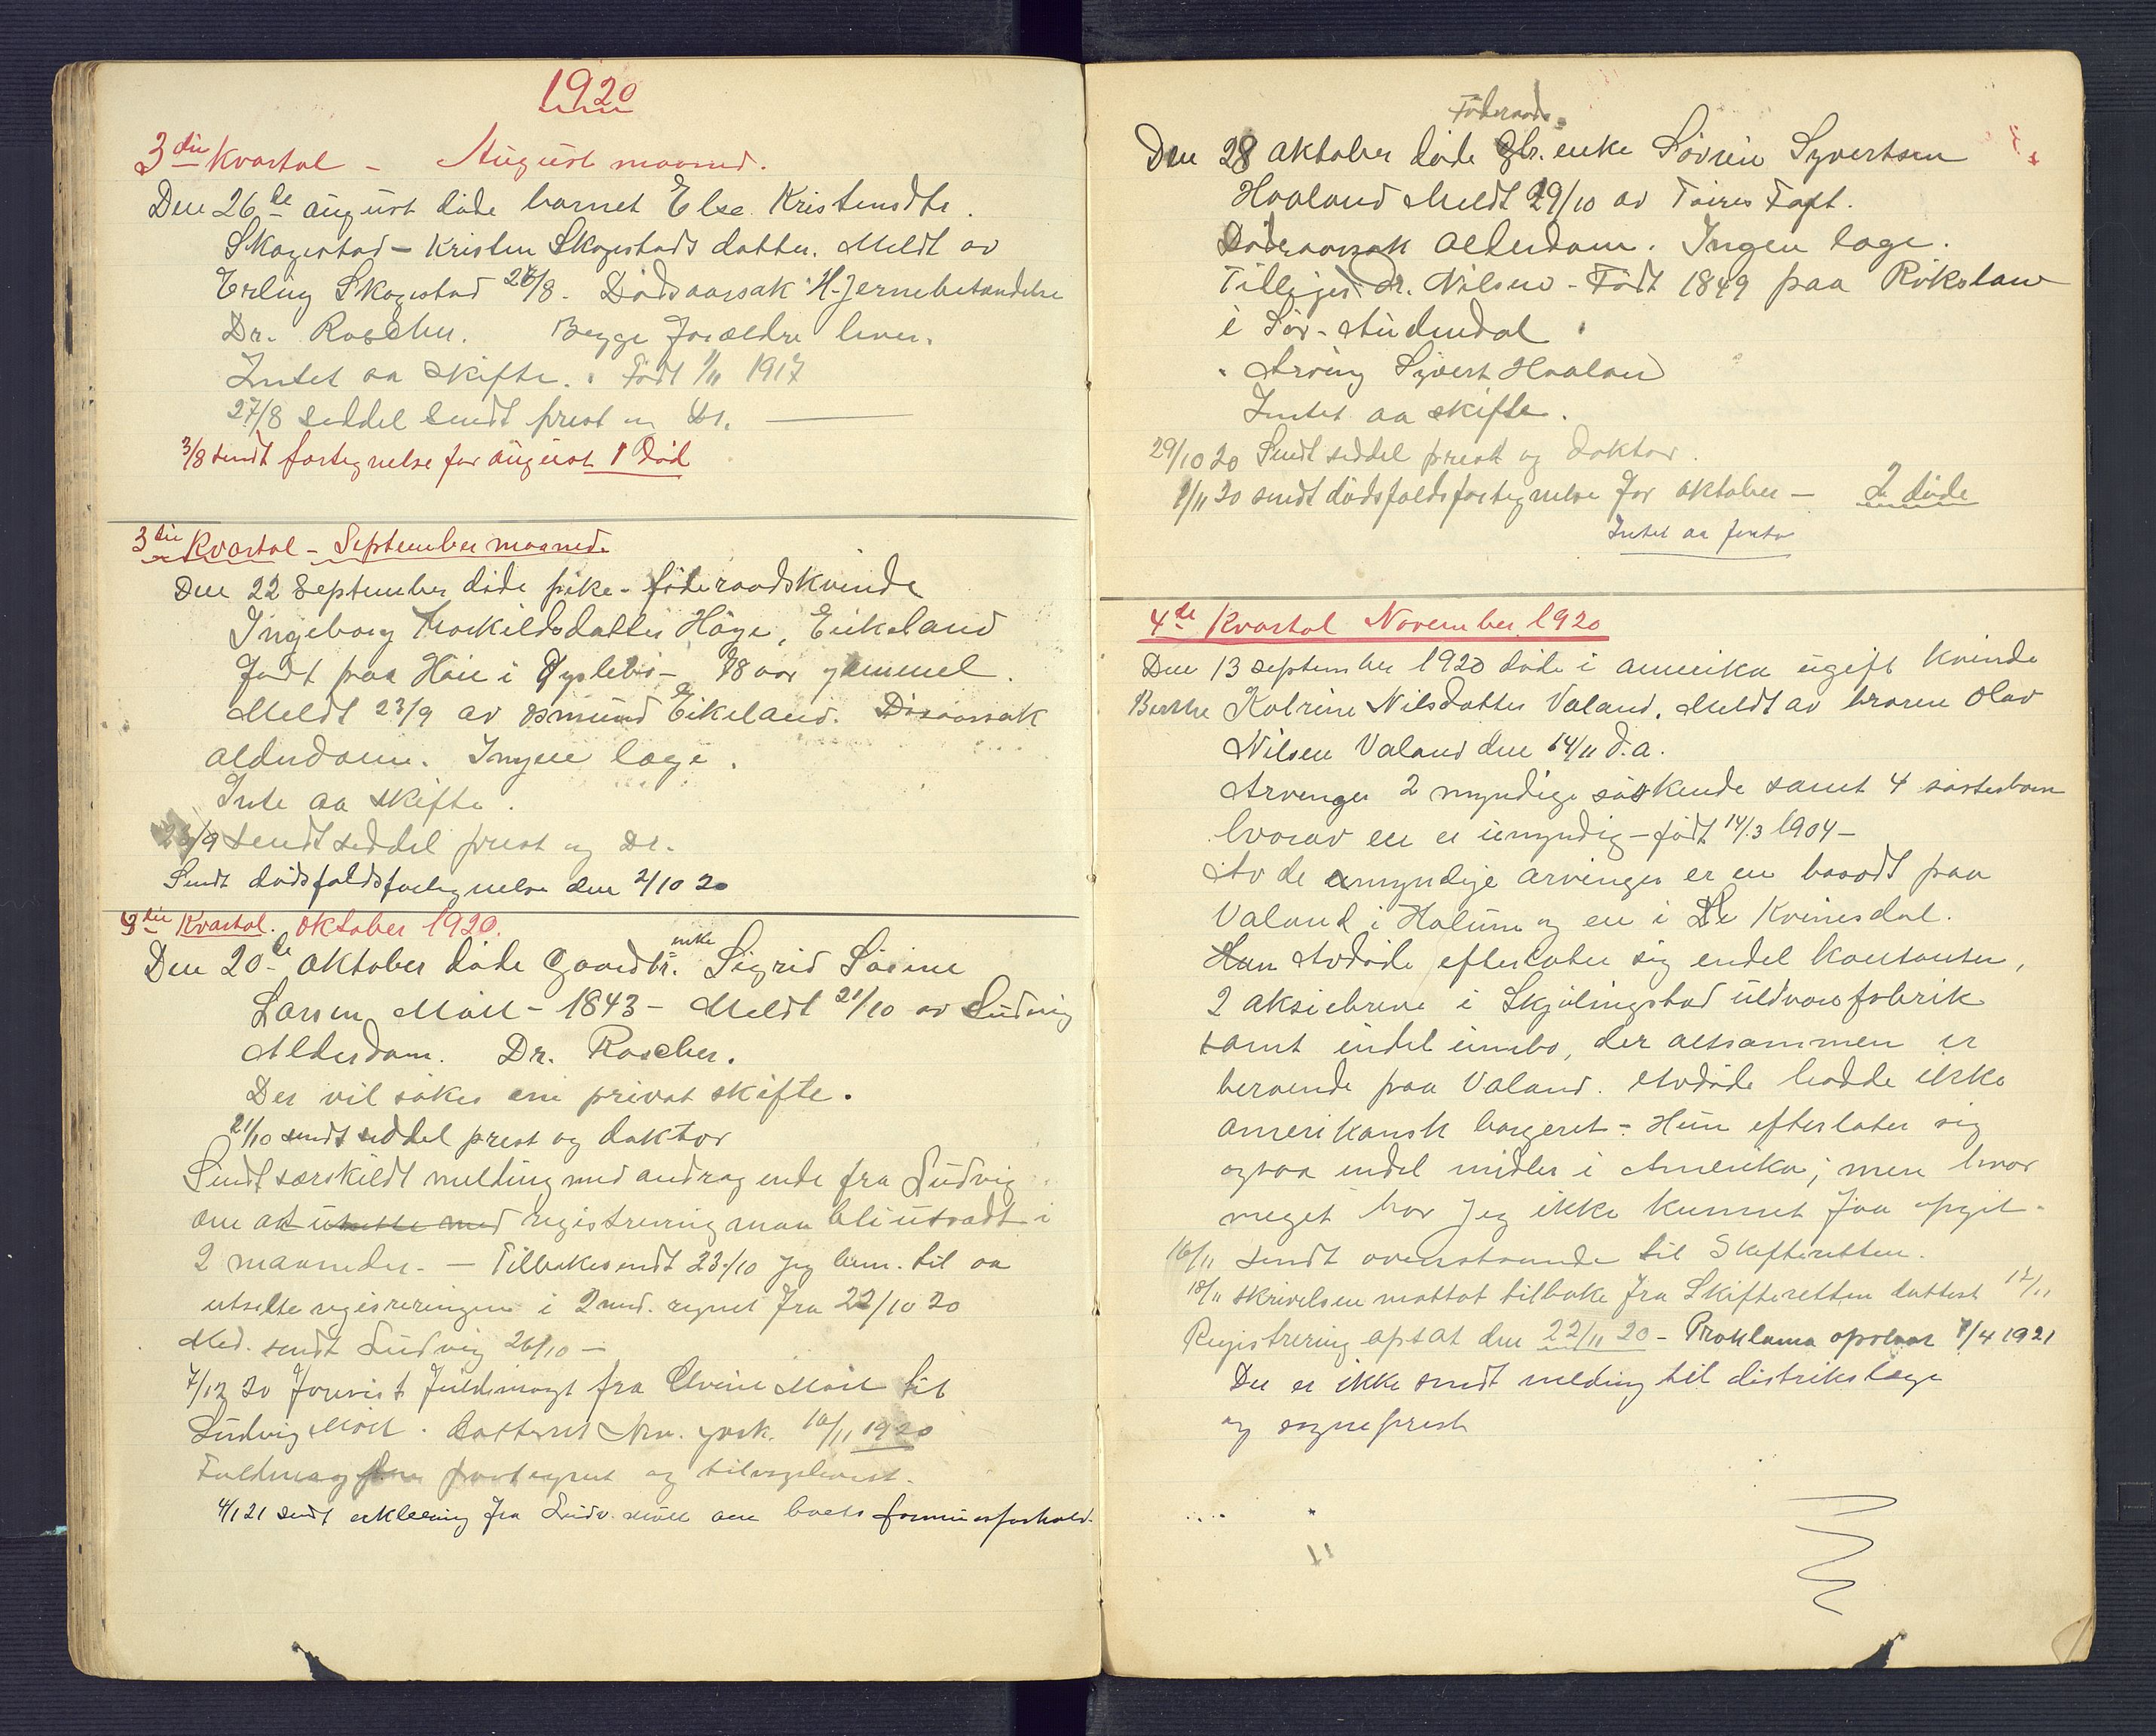 1920
3die Kvartal - August maaned.
Den 26de august döde barnet Else Kristensdtr.
Skagestad - Kristen Skagestads datter. Meldt av
Erling Skagestad 26/8. Dödsaarsak Hjernebetændelse
Dr. Roscher. Begge forældre lever.
Intet aa skifte. Född 1/11 1917
27/8 seddel sendt prest og Dr.
3/8 sendt fortegnelse for august 1 död
3die Kvartal - September maaned.
Den 22 September döde pike - föderaadskvinde
Ingeborg Torkildsdatter Höye, Eikeland
født paa Höie i Öyslebö - 78 aar gammel.
Meldt 23/9 av Osmund Eikeland. Dösaarsak
alderdom. Ingen læge.
Inte aa skifte.
23/9 sendt seddel prest og Dr.
Sendt dödsfaldsfortegnelse den 2/10 20
die Kvartal. Oktober 1920.
Den 20de oktober döde Gaardbr. enke Sigrid Sörine
Larsen Möll - 1843 - Meldt 21/10 av Ludvig
Alderdom. Dr. Roscher.
Der vil sökes om privat skifte.
21/10 sendt seddel prest og doktor
Sendt særskildt melding med andragende fra Ludvig
om at utsette med registrering maa bli utsadt i
2 maaneder. - Tilbakesendt 23/10 jeg bem. til aa
utsette regisreringen i 2 mnd. regnet fra 22/10 20
Med. sendt Ludvig 26/10 -
7/12 20 forevist fuldmagt fra Möll til
Ludvig Möll. Datteret New. york. 10/11 1920
Fuldmag protegnet og
4/1 21 sendt erklæring fra Ludv. Möll om boets formuesforhold.
Föderaads-
Den 28 oktober döde Gbr. enke Sövrin Syvertsen
Haaland Meldt 29/10 av Toft.
Dödsaarsak Alderdom. Ingen læge.
Tilliges Dr. Nilsen - Född 1849 paa
i Sör-Audnedal
Arving Syvert Haaland
Intet aa skifte.
29/10 20 Sendt seddel prest og doktor.
1/11 20 sendt dödsfaldsfortegnelse for oktober - 2 döde
Intet aa
4de Kvartal November 1920
Den 13 september 1920 döde i amerika ugift kvinde
Berthe Katrine Nilsdatter Valand. Meldt av broren Olav
Nilsen Valand den 14/11 d.a.
Arvinger 2 myndige söskende samt 4 sösterbarn
hvorav en er umyndig - födt 14/3 1904 -
Av de myndige arvinger er en bosadt paa
Valand i Holum og en i Kvinesdal.
Hun Avdöde efterlater sig endel kontanter,
2 aksiebreve i Skjölingstad uldvarefabrik
samt endel innbo, der altsammen er
beroende paa Valand. Avdöde hadde ikke
amerikansk borgeret - Hun efterlater sig
ogsaa endel midler i Amerika; men hvor
meget har jeg ikke kunnet faa opgit.
16/11 sendt ovenstaaende til Skifteretten.
18/11 skrivelsen mottat tilbake fra Skifteretten dattert 17/11
Registrering opsat den 22/11 20 - Proklama 1/4 1921
Der er ikke sendt melding til distrikslæge
og sogneprest